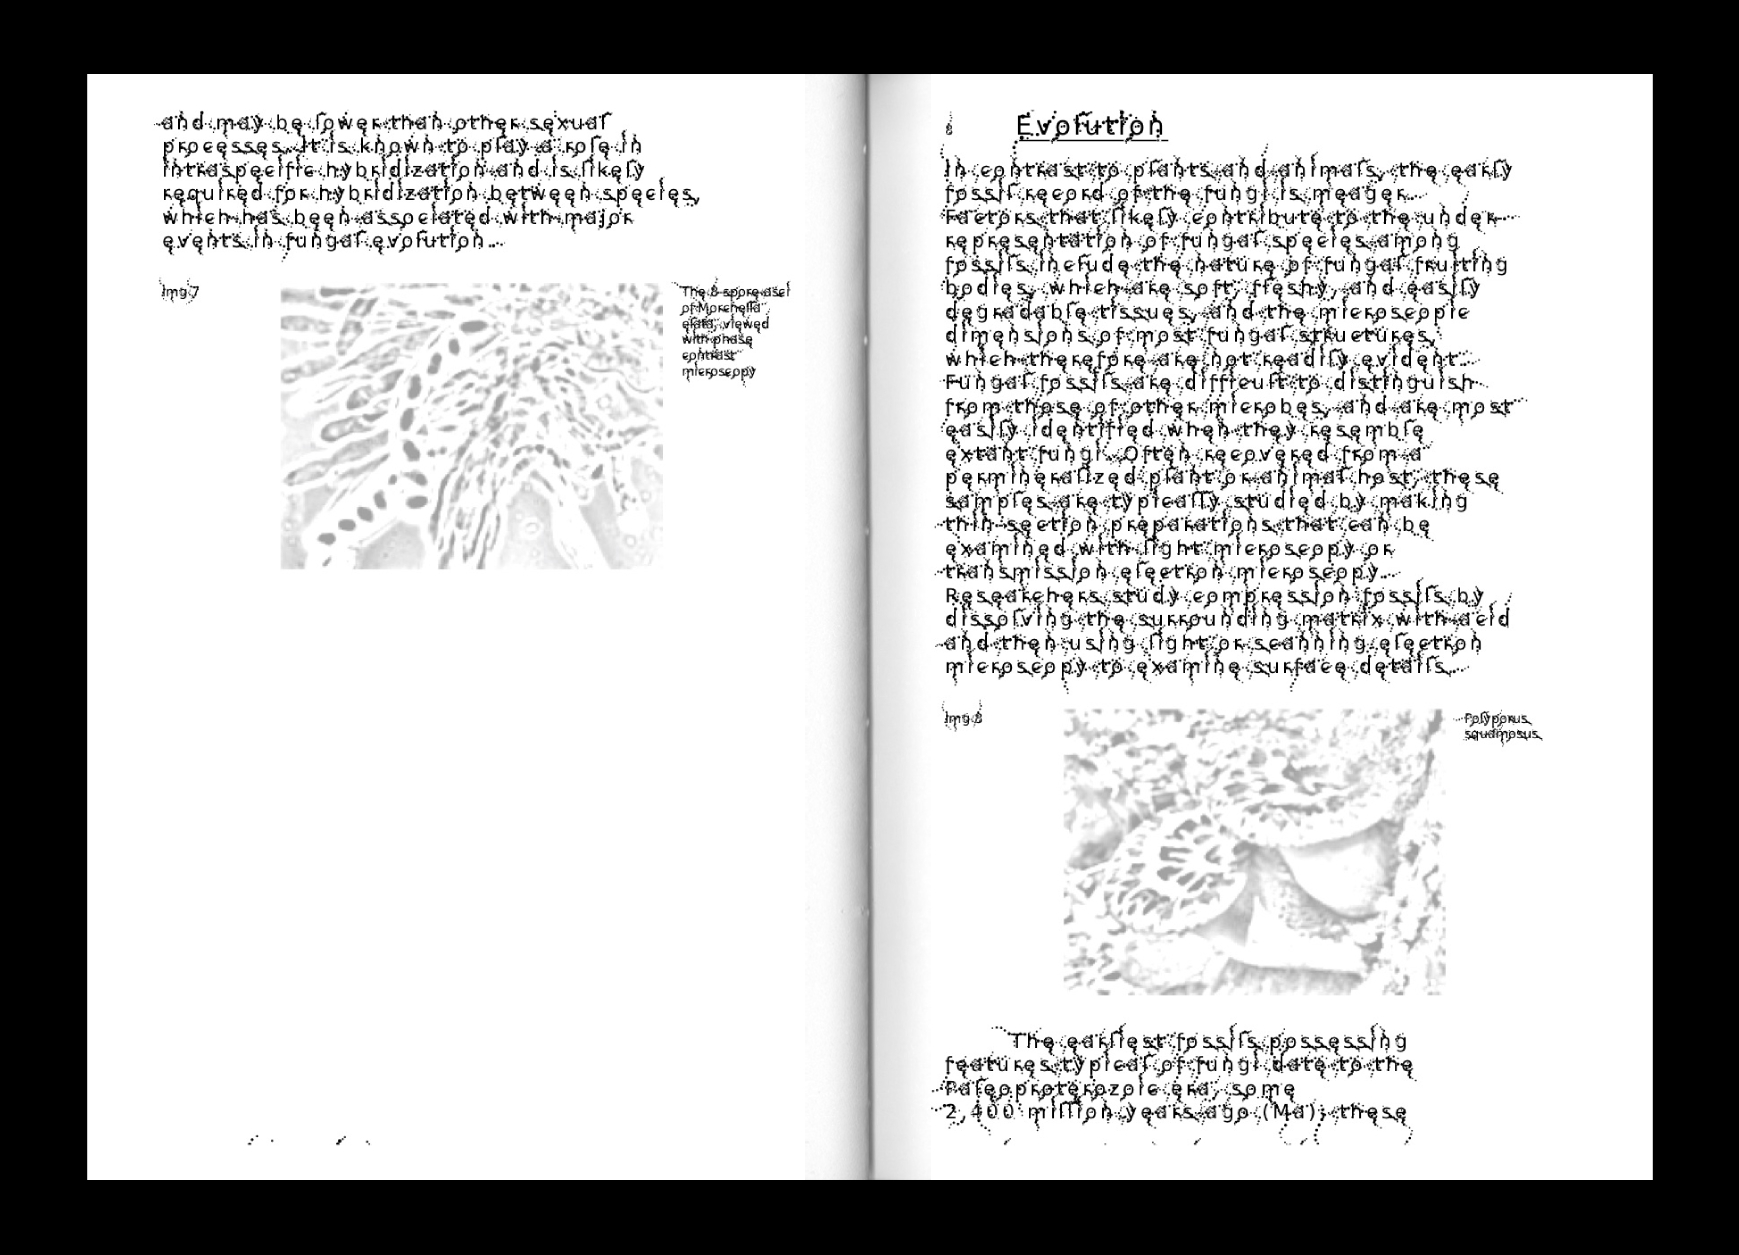 and may be lower than other sexual
processes. It is known to play a role in
intraspecific hybridization and is likely
required for hybridization between species,
which has been associated with major
events in fungal evolution.
Img 7
The 8-spore asci
of Morchella
elata, viewed
with phase
contrast
microscopy
Evolution
In contrast to plants and animals, the early
fossil record of the fungi is meager.
Factors that likely contribute to the under-
representation of fungal species among
fossils include the nature of fungal fruiting
bodies, which are soft, fleshy, and easily
degradable tissues, and the microscopic
dimensions of most fungal structures,
which therefore are not readily evident.
Fungal fossils are difficult to distinguish
from those of other microbes, and are most
easily identified when they resemble
extant fungi. Often recovered from a
permineralized plant or animal host, these
samples are typically studied by making
thin-section preparations that can be
examined with light microscopy or
transmission electron microscopy.
Researchers study compression fossils by
dissolving the surrounding matrix with acid
and then using light or scanning electron
microscopy to examine surface details.
Img 8
Polyporus
squamosus
The earliest fossils possessing
features typical of fungi date to the
Paleoproterozoic era, some
2,400 million years ago (Ma); these